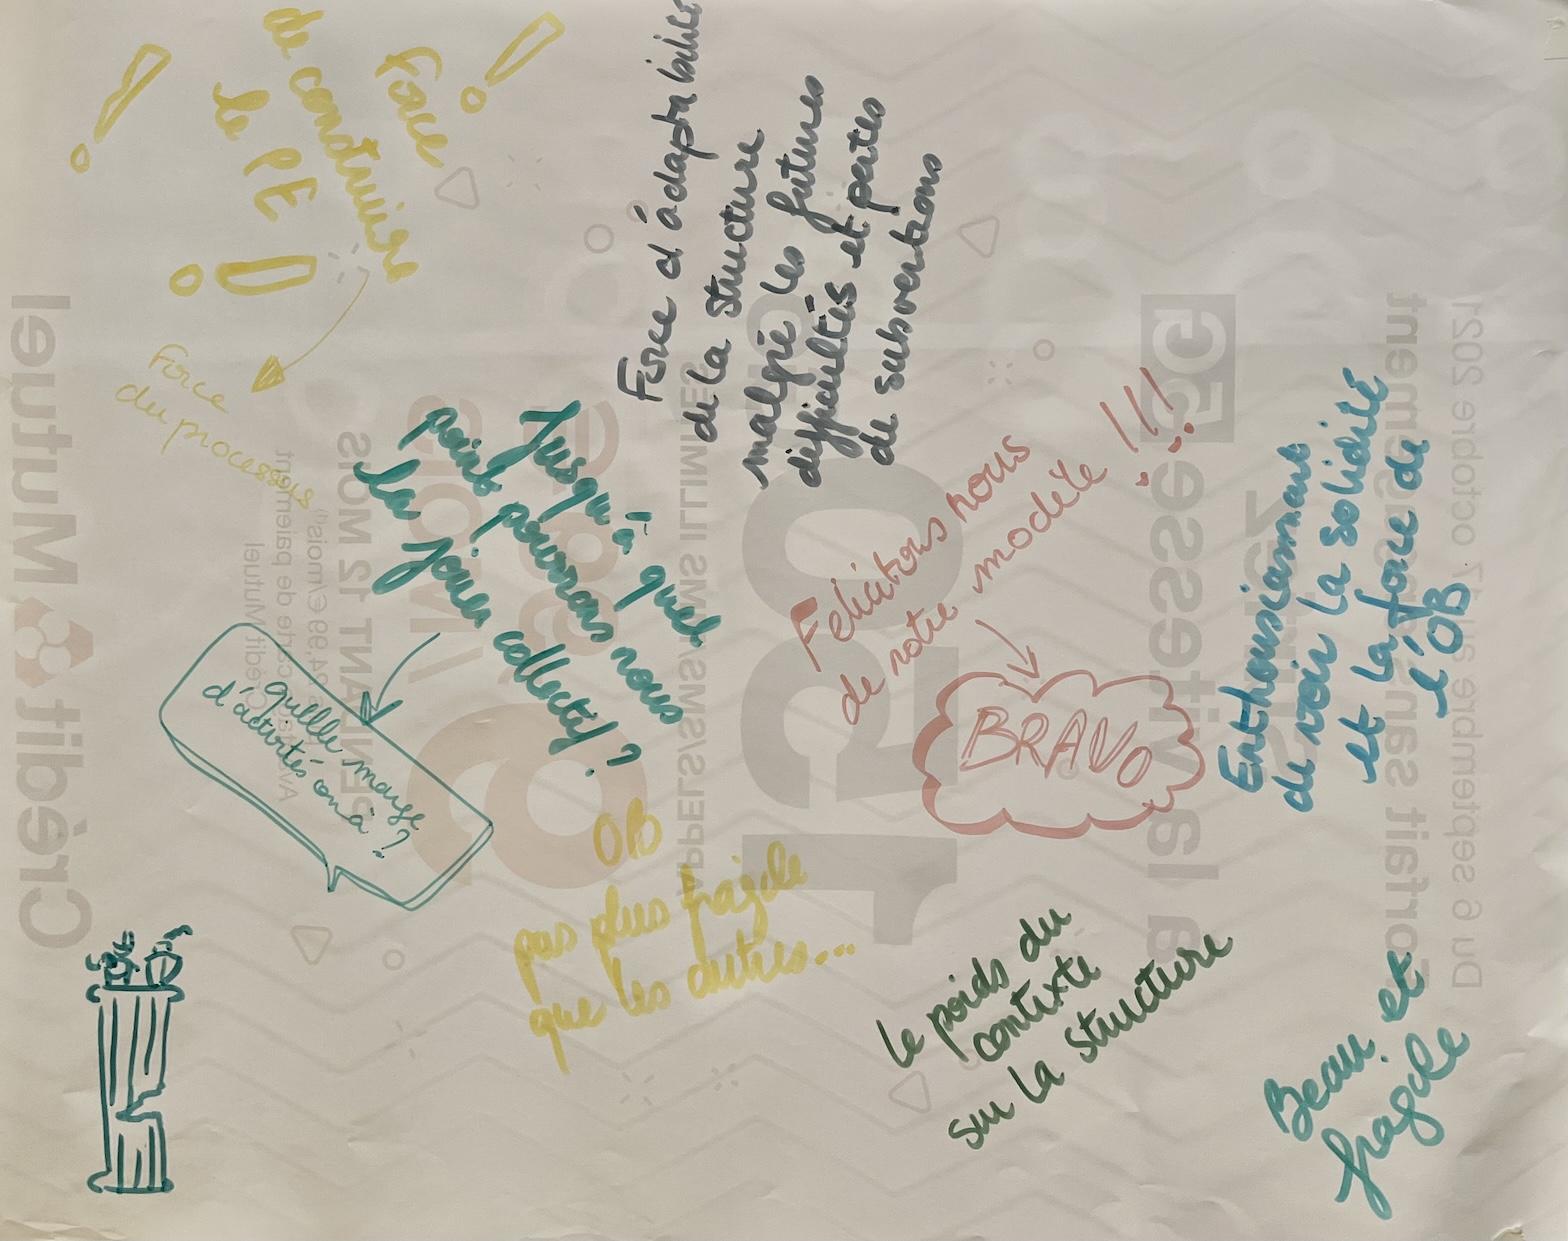 Force
de construire
le PE !
!
!
Force
du processus
Force d'adaptabilité
de la structure
malgré les futures
difficultés et pertes
de subventions
Jusqu'à quel
point pouvons nous
la jouer collectif ?
quelle marge
d'activités on a ?
Félicitons nous
de notre modèle !!!
BRAVO
Enthousiasmans
de voir la solidité
et la force de
l'OB
OB
pas plus fragile
que les autres...
Le poids du
contexte
sur la structure
Beau et
fragile
Crédit Mutuel
PENDANT 12 MOIS
APPELS/SMS/MMS ILLIMITÉS
130
5G
à la vitesse
Forfait sans engagement
Du 6 septembre au 17 octobre 2021